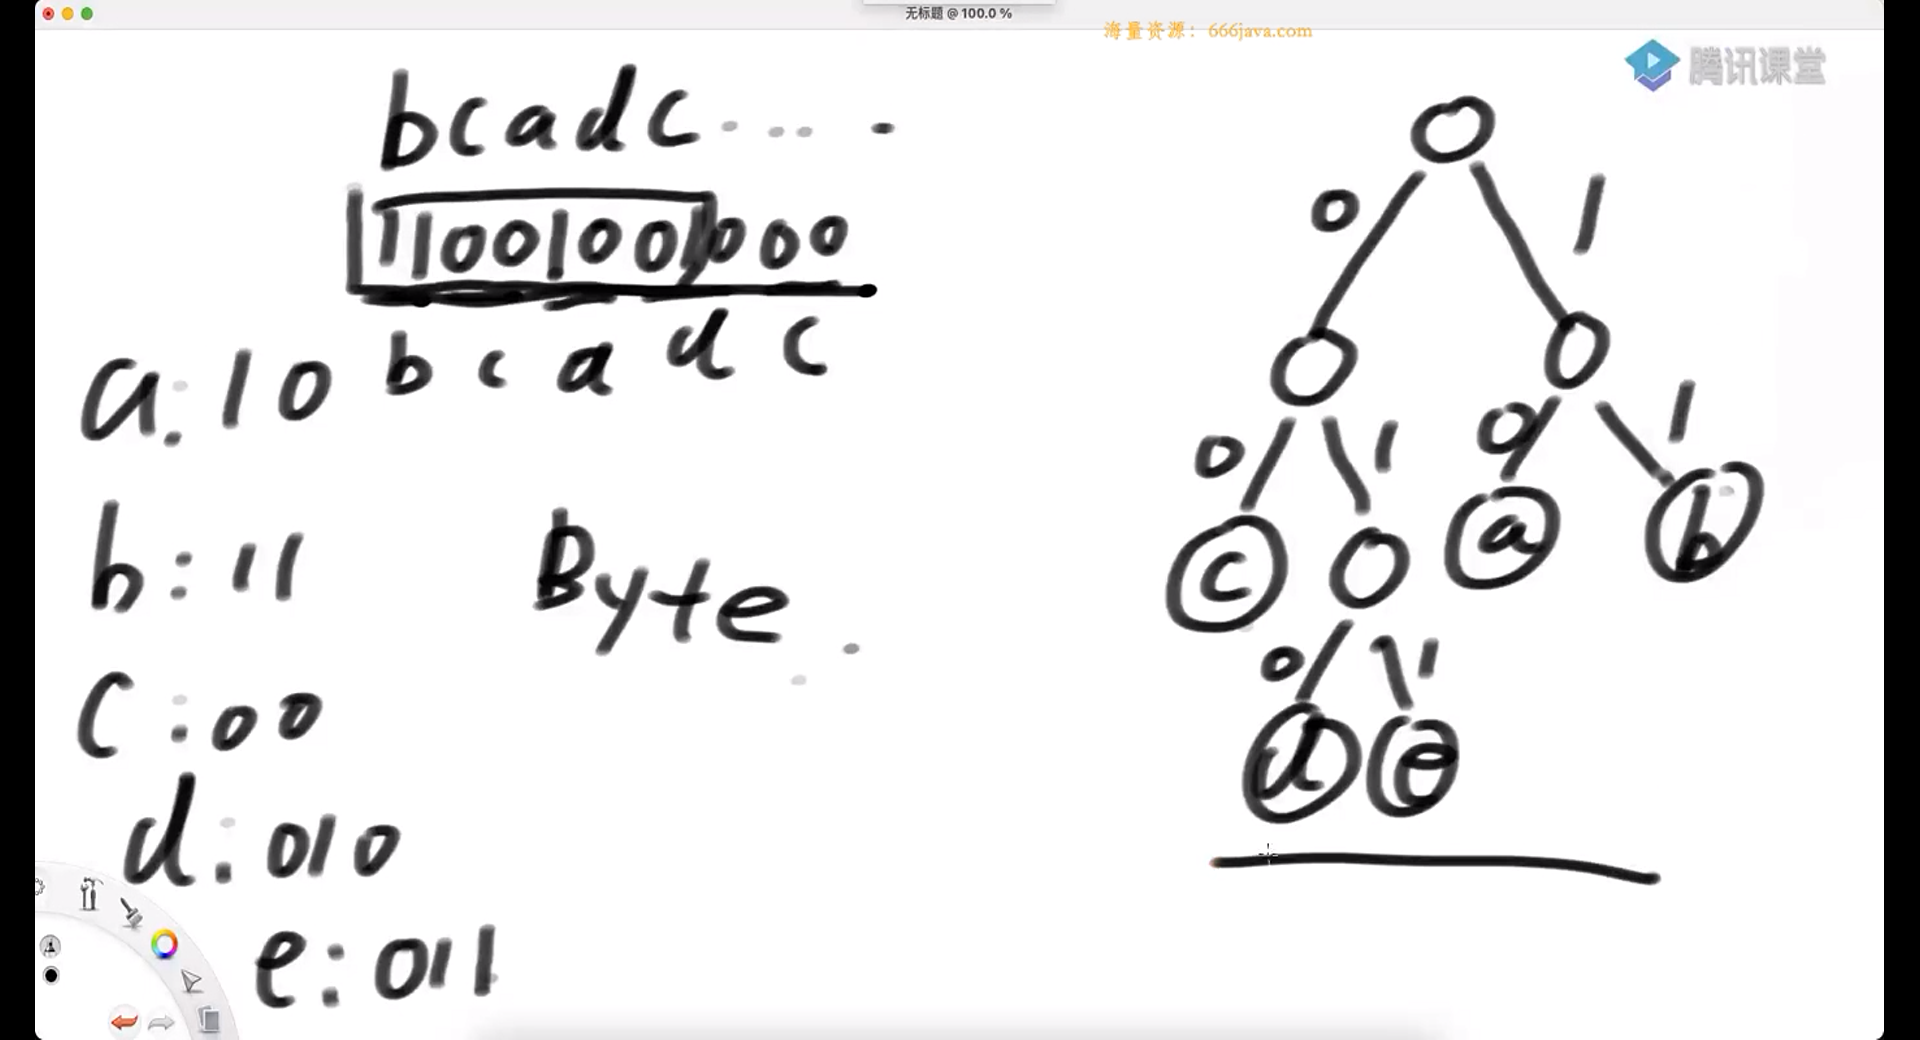 无标题 @ 100.0 %
海量资源：666java.com
腾讯课堂
bcadc.....
11001001000
b c a d c
a:10
b:11
c:00
d:010
e:011
Byte
0 1
0 1 0 1
c a b
0 1
d e